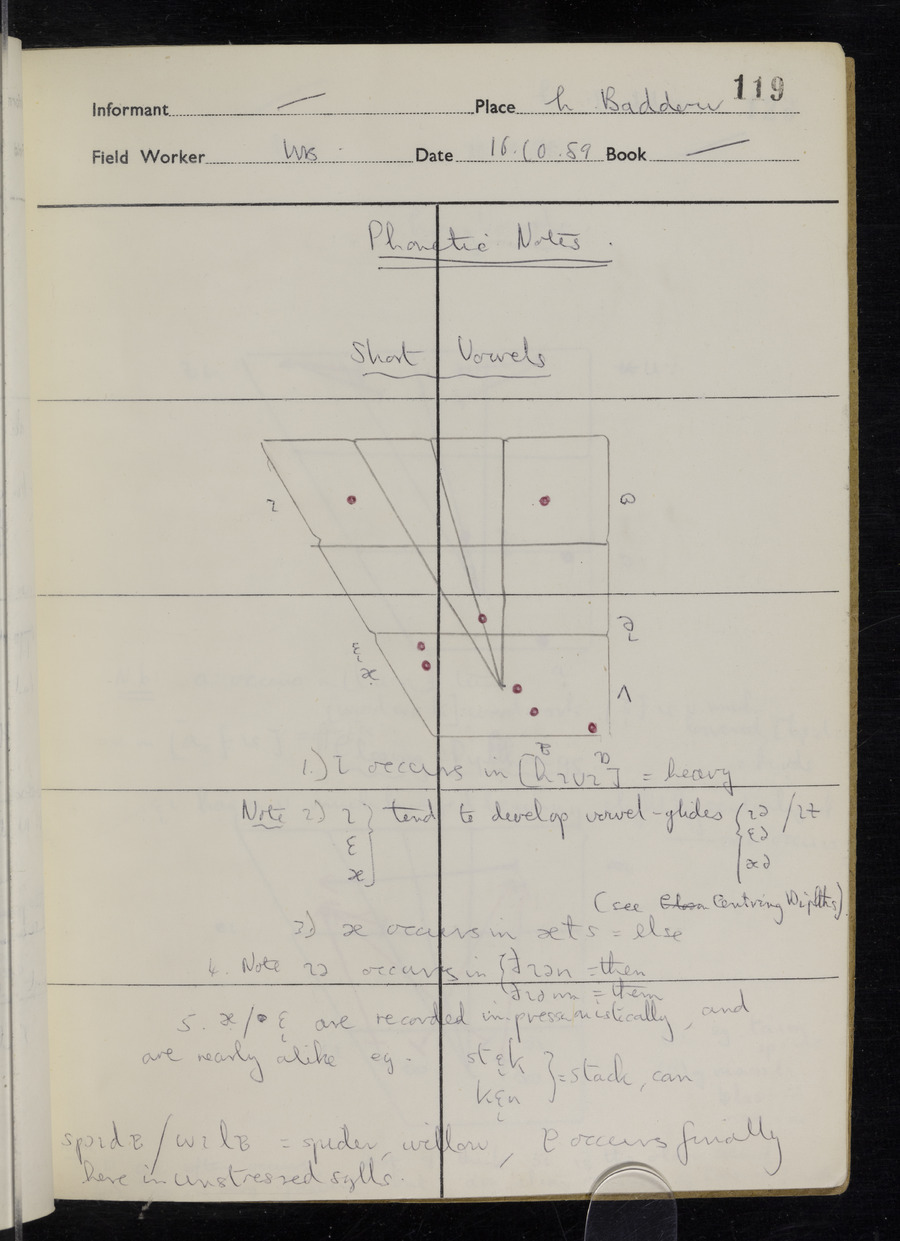 119
Informant — Place L. Baddow
Field Worker WB. Date 16.10.59 Book —
Phonetic Notes.
Short Vowels
ɩ ɷ
ə
ɛ
æ ʌ
ɐ ɒ
1.) ɩ occurs in [hɩvɩ] = heavy
Note 2) ɩ } tend to develop vowel-glides { ɩə / ɩɫ
ɛ ɛə
æ æə
(see Centring Dipths)
3) æ occurs in æɫs = else
4. Note ɩə occurs in { ðɩən = then
ðɩəm = them
5. æ / ɛ̞ are recorded impressionistically, and
are nearly alike eg. stɛ̞k } = stack, can
kɛ̞n
spɩdɐ / wɩlɐ = spider, willow, ɐ occurs finally
here in unstressed sylls.